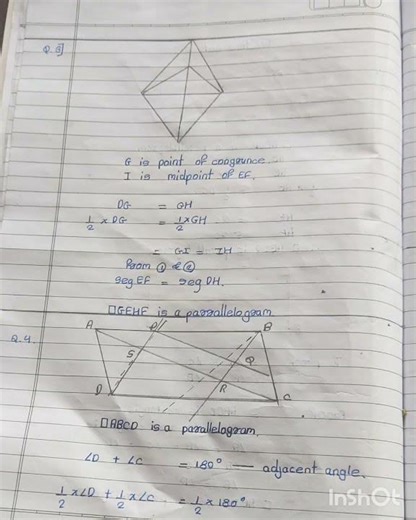 Q.3]
G is point of congruence.
I is midpoint of EF.
DG = GH
1/2 × DG = 1/2 × GH
= GI = IH
From ① & ②
seg EF = seg DH.
□GEHF is a parallelogram
Q.4.
A P B
S Q
R
D C
□ABCD is a parallelogram.
∠D + ∠C = 180° — adjacent angle.
1/2 × ∠D + 1/2 × ∠C = 1/2 × 180°
InShOt